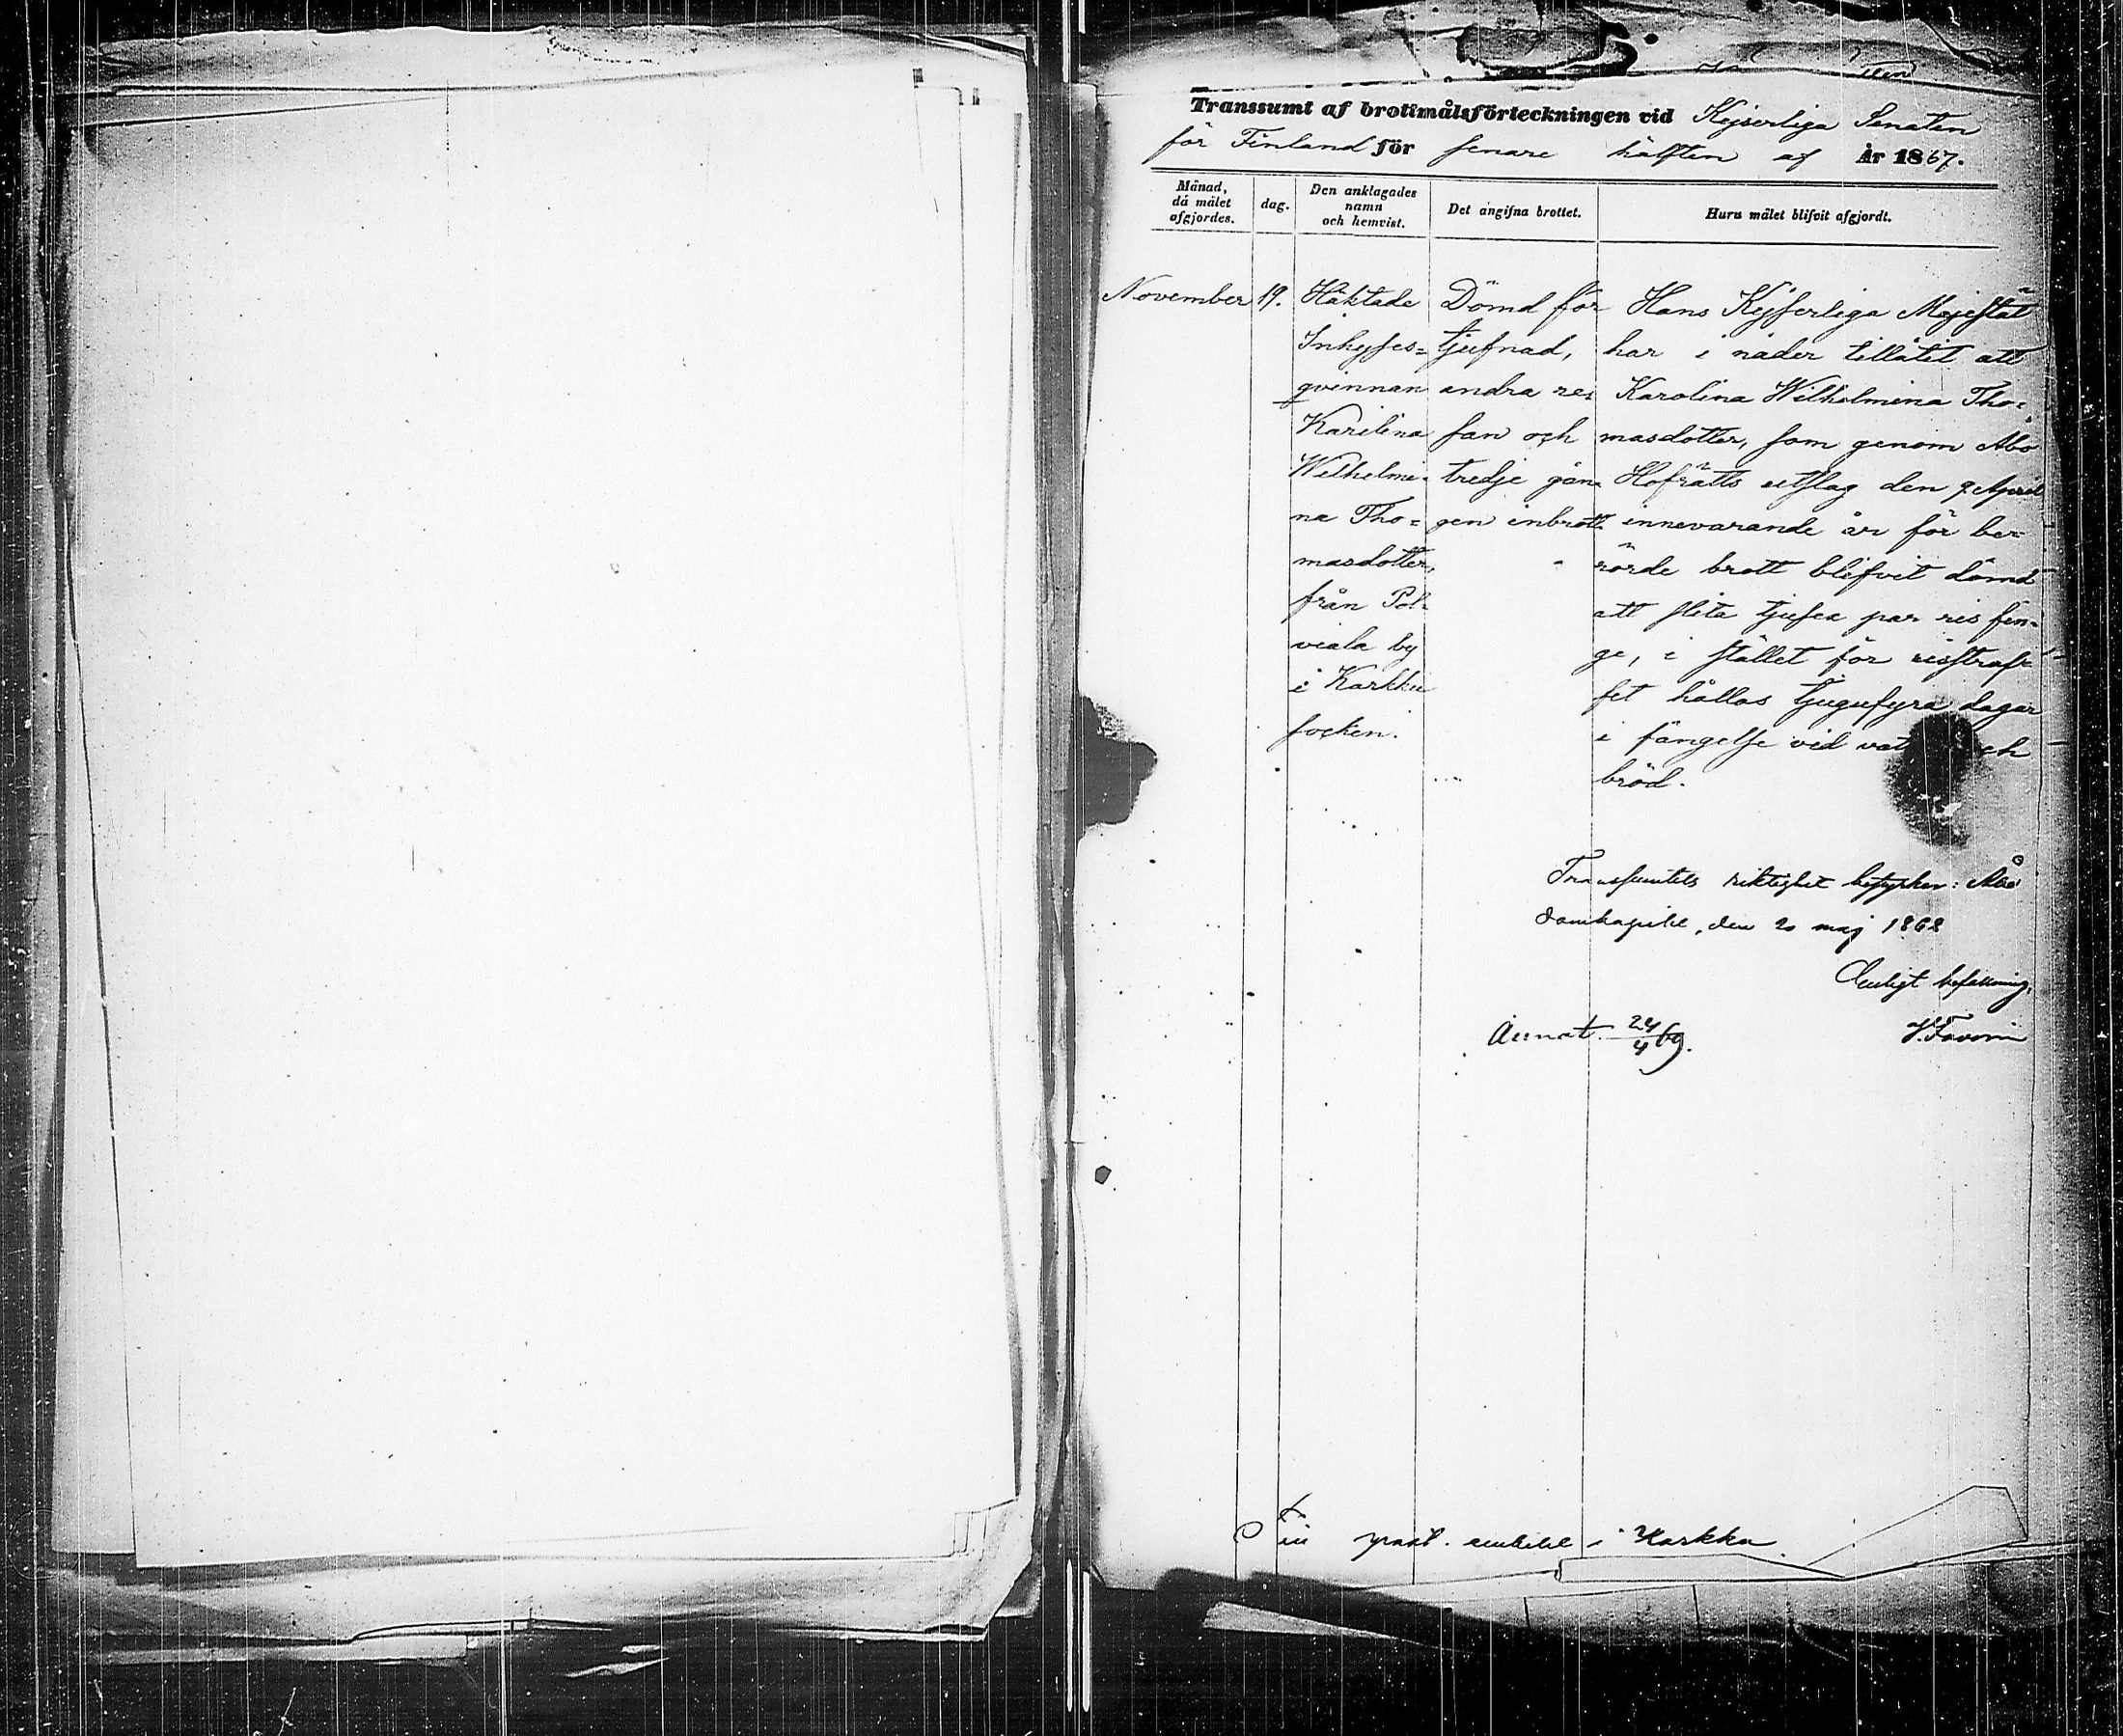 Transsumt af brottmålsförteckningen vid Kejserliga Senaten
för Finland för senare hälften af År 1867.
Månad, då målet afgjordes.
dag.
Den anklagades namn och hemvist.
Det angifna brottet.
Huru målet blifvit afgjordt.
November 19.
Häktade
Inhyses=
qvinnan
Karilina
Wilhelmi-
na Tho=
masdotter,
från Pol-
viala by
i Karkku
socken.
Dömd för
tjufnad,
andra re=
san och
tredje gån=
gen inbrott
Hans Kejserliga Majestät
har i nåder tillåtit att
Karolina Wilhelmina Tho=
masdotter, som genom Åbo
Hofrätts utslag den 9 April
innevarande år för be-
rörde brott blifvit dömd
att slita tjufex par ris fin-
ge, i stället för risstraf-
fet hållas tjugufyra dagar
i fängelse vid vat ch
bröd.
Transsumtets riktighet bestyrker: Åbo
domkapitel, den 20 maj 1868
Enligt befallning:
Annot. 24/4 69.
Till past. embetet i Karkku.